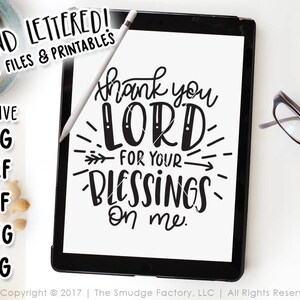 ND LETTERED!
FILES & PRINTABLES
IVE
G
F
F
G
G
thank you
LORD
FOR YOUR
BLESSINGS
on me.
Copyright © 2017 | The Smudge Factory, LLC | All Rights Reserved